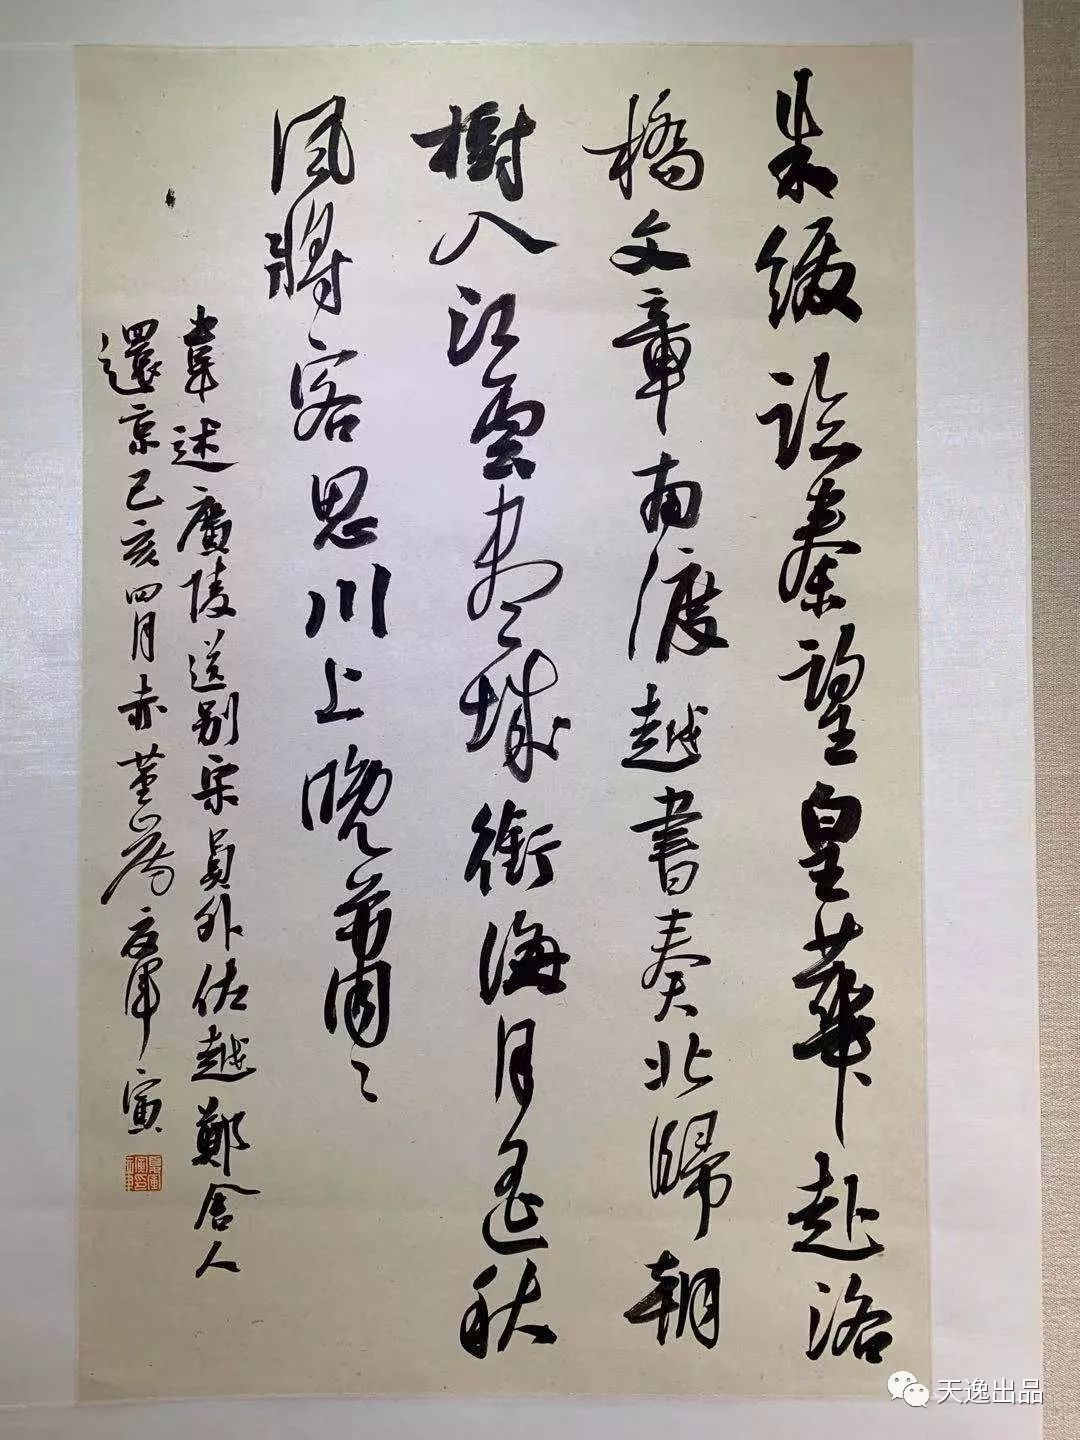 朱绂临秦望皇華赴洛
橋文章南渡越書奏北歸朝
樹入江雲盡城銜海月遥秋
風將客思川上晚蕭〻
韋述廣陵送别宋員外佐越鄭舍人
還京己亥四月赤堇山房夏軍寅
天逸出品